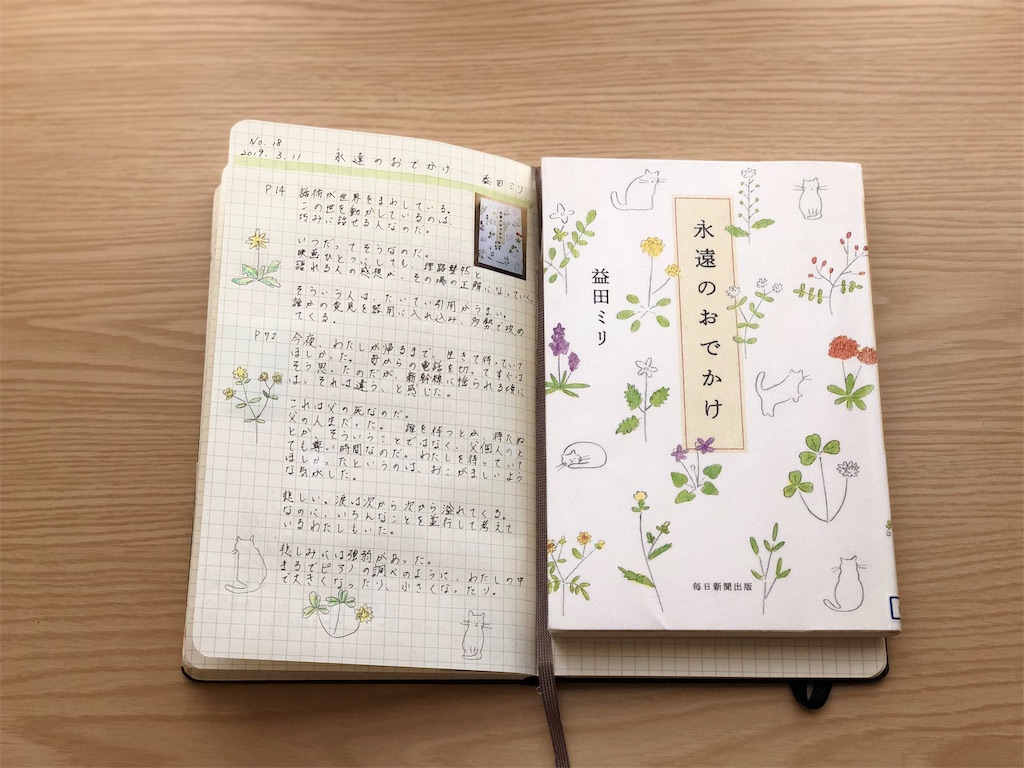 No. 18
2019. 3. 11 永遠のおでかけ 益田ミリ
P14 話術が世界をまわしている。
この世を動かしているのは、
巧みに話せる人なのだ。
いつだってそうなのだ。
映画ひとつにしても、理路整然と
語れる人の感想が、その場の正解になっていく。
そういう人は、たいてい引用がうまい。
誰かの意見を器用に入れ込み、多勢で攻め
てくる。
P72 今夜、わたしが帰るまで、生きて待っていて
ほしかった。母からの電話を切ってすぐは
そう思ったのだが、新幹線に揺られる頃に
は、それは違う、と感じた。
これは父の死なのだ。
父の人生だった。誰を待つとか、待たぬ
とか、そういうことではなく、父個人のと
ても尊い時間なのだ。わたしを待っていて
ほしかったというのは、おこがましいよう
な気がした。
悲しい。涙は次から次から溢れてくる。
なのに、いろんなことを並行して考えて
いるわたしもいた。
悲しみには強弱があった。
まるでピアノの調べのように、わたしの中
で大きくなったり、小さくなったり。
永遠のおでかけ
益田ミリ
毎日新聞出版